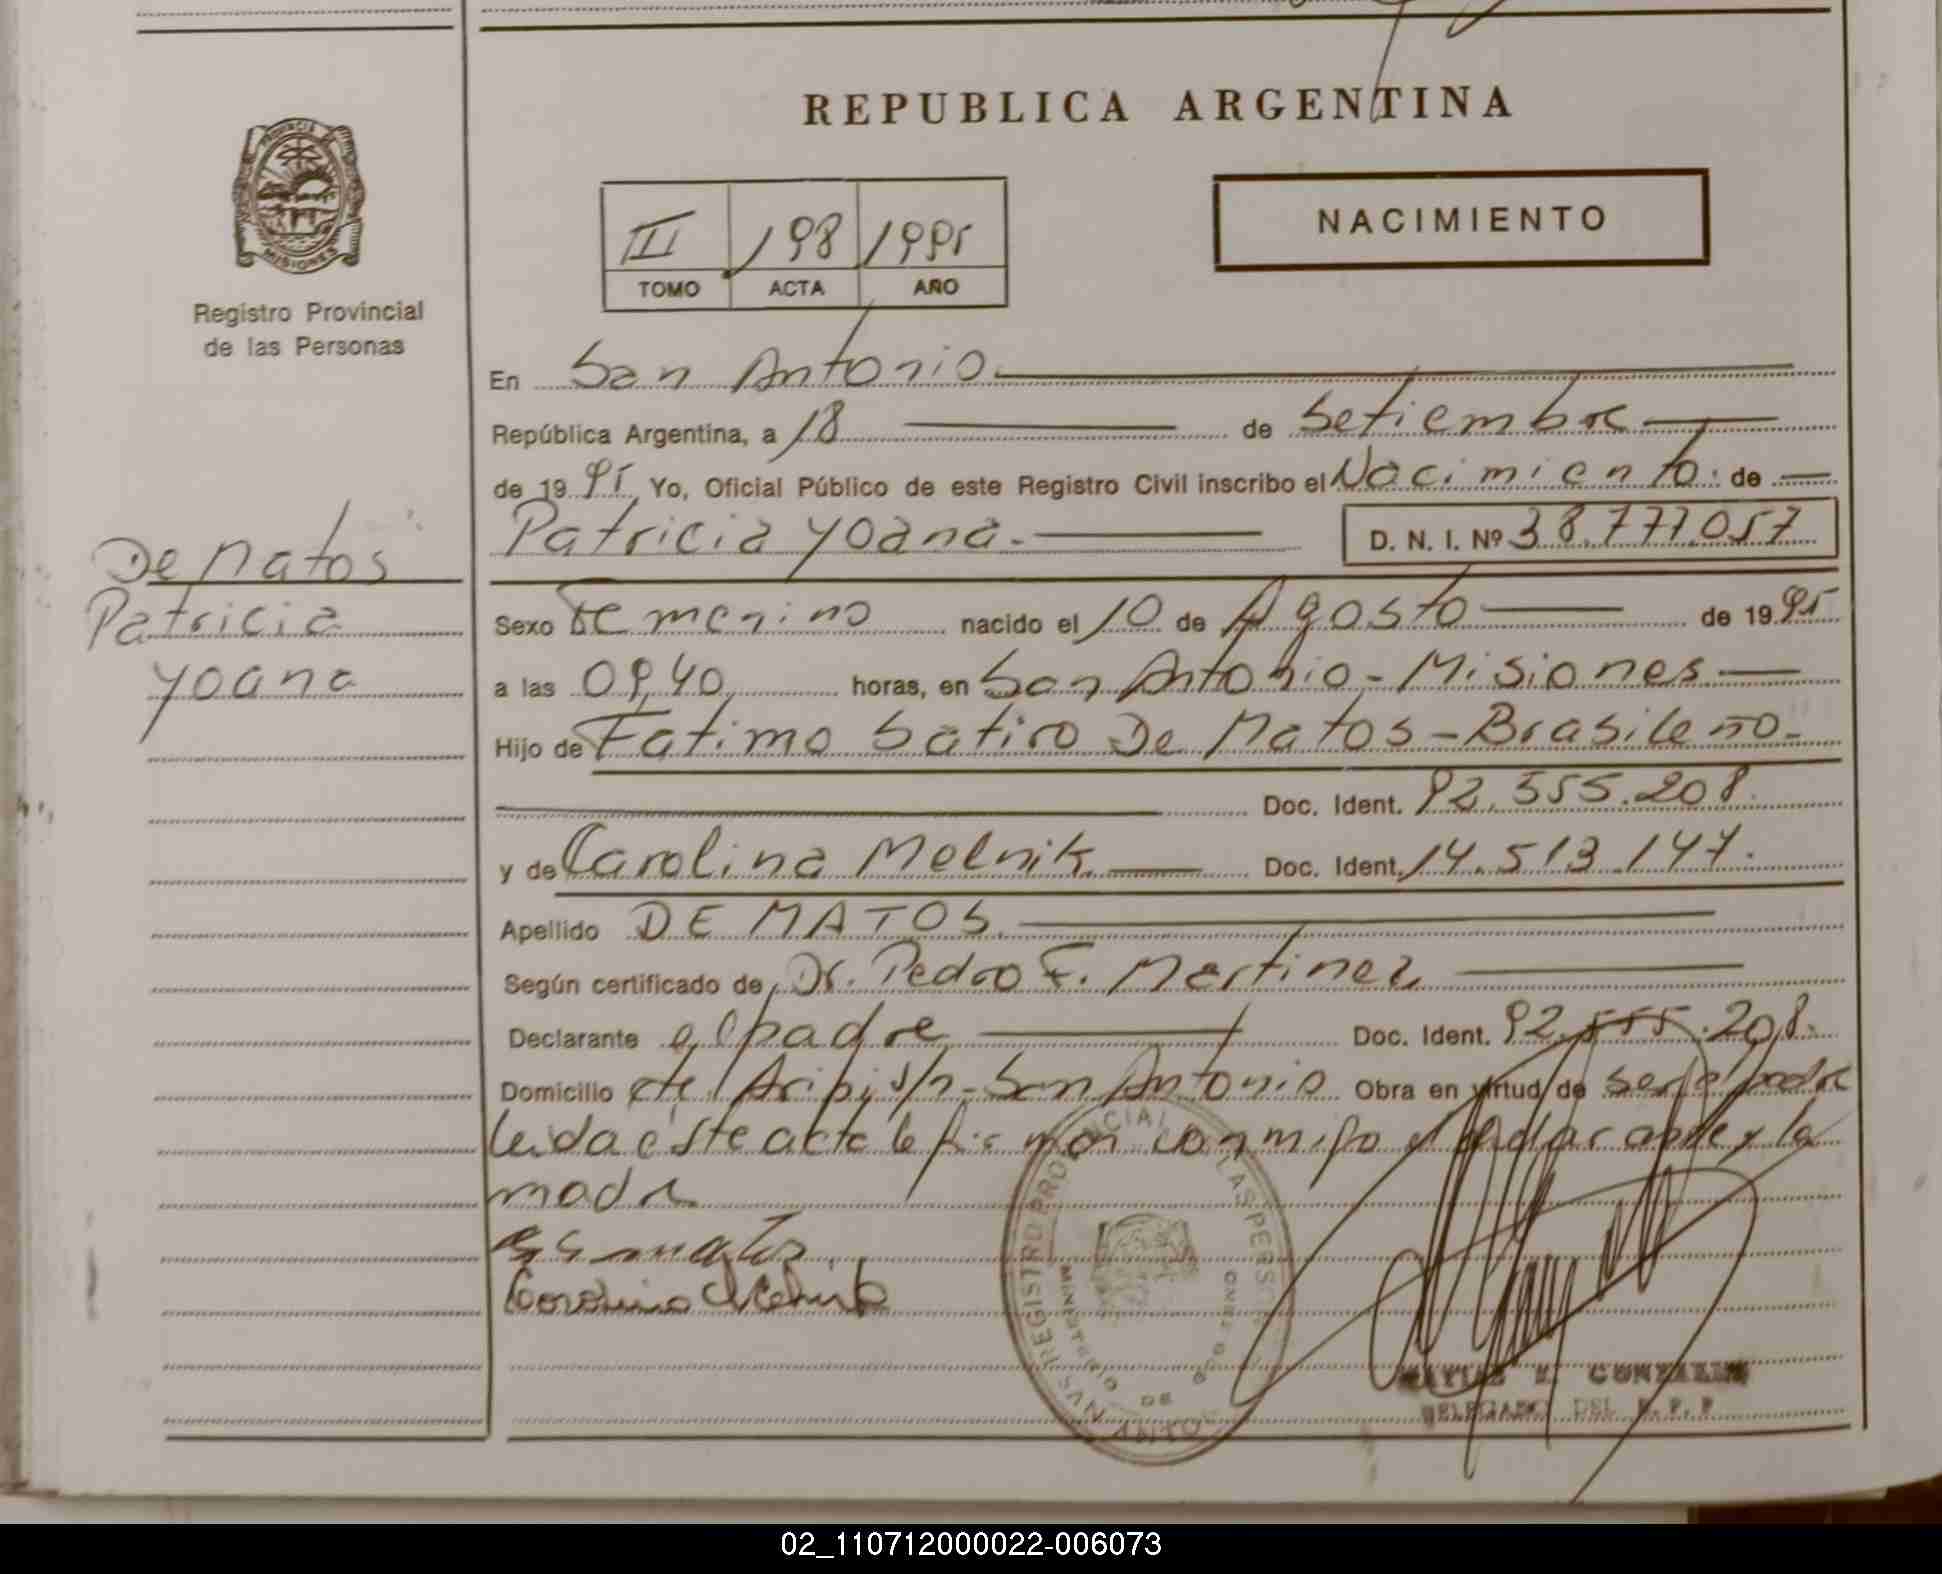 REPUBLICA ARGENTINA
PROVINCIA
MISIONES
Registro Provincial
de las Personas
III 198 1995
TOMO ACTA AÑO
NACIMIENTO
En San Antonio.
República Argentina, a 18 de Setiembre
de 1995 Yo, Oficial Público de este Registro Civil inscribo el Nacimiento. de
Patricia Yoana. D. N. I. Nº 38.777.057
De Matos
Patricia
Yoana
Sexo Femenino nacido el 10 de Agosto de 1995
a las 09,40 horas, en San Antonio - Misiones
Hijo de Fatimo Satiro De Matos - Brasileño.
Doc. Ident. 92.555.208.
y de Carolina Melnik. Doc. Ident. 14.513.147.
Apellido DE MATOS.
Según certificado de Dr. Pedro F. Martinez
Declarante el padre Doc. Ident. 92.555.208.
Domicilio s/n - San Antonio Obra en virtud de ser el padre
Leida ésta acta la firman conmigo el declarante y la
madre
REGISTRO PROVINCIAL LAS PERSONAS
MINISTERIO DE GOBIERNO
SAN ANTONIO
DELEGADO DEL R. P. P
02_110712000022-006073